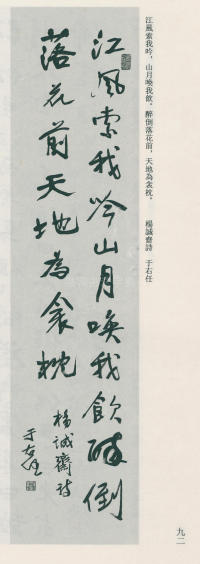 江風索我吟，山月喚我飲。醉倒落花前，天地為衾枕。　楊誠齋詩　于右任
江風索我吟山月喚我飲醉倒
落花前天地為衾枕
楊誠齋詩
于右任
九二